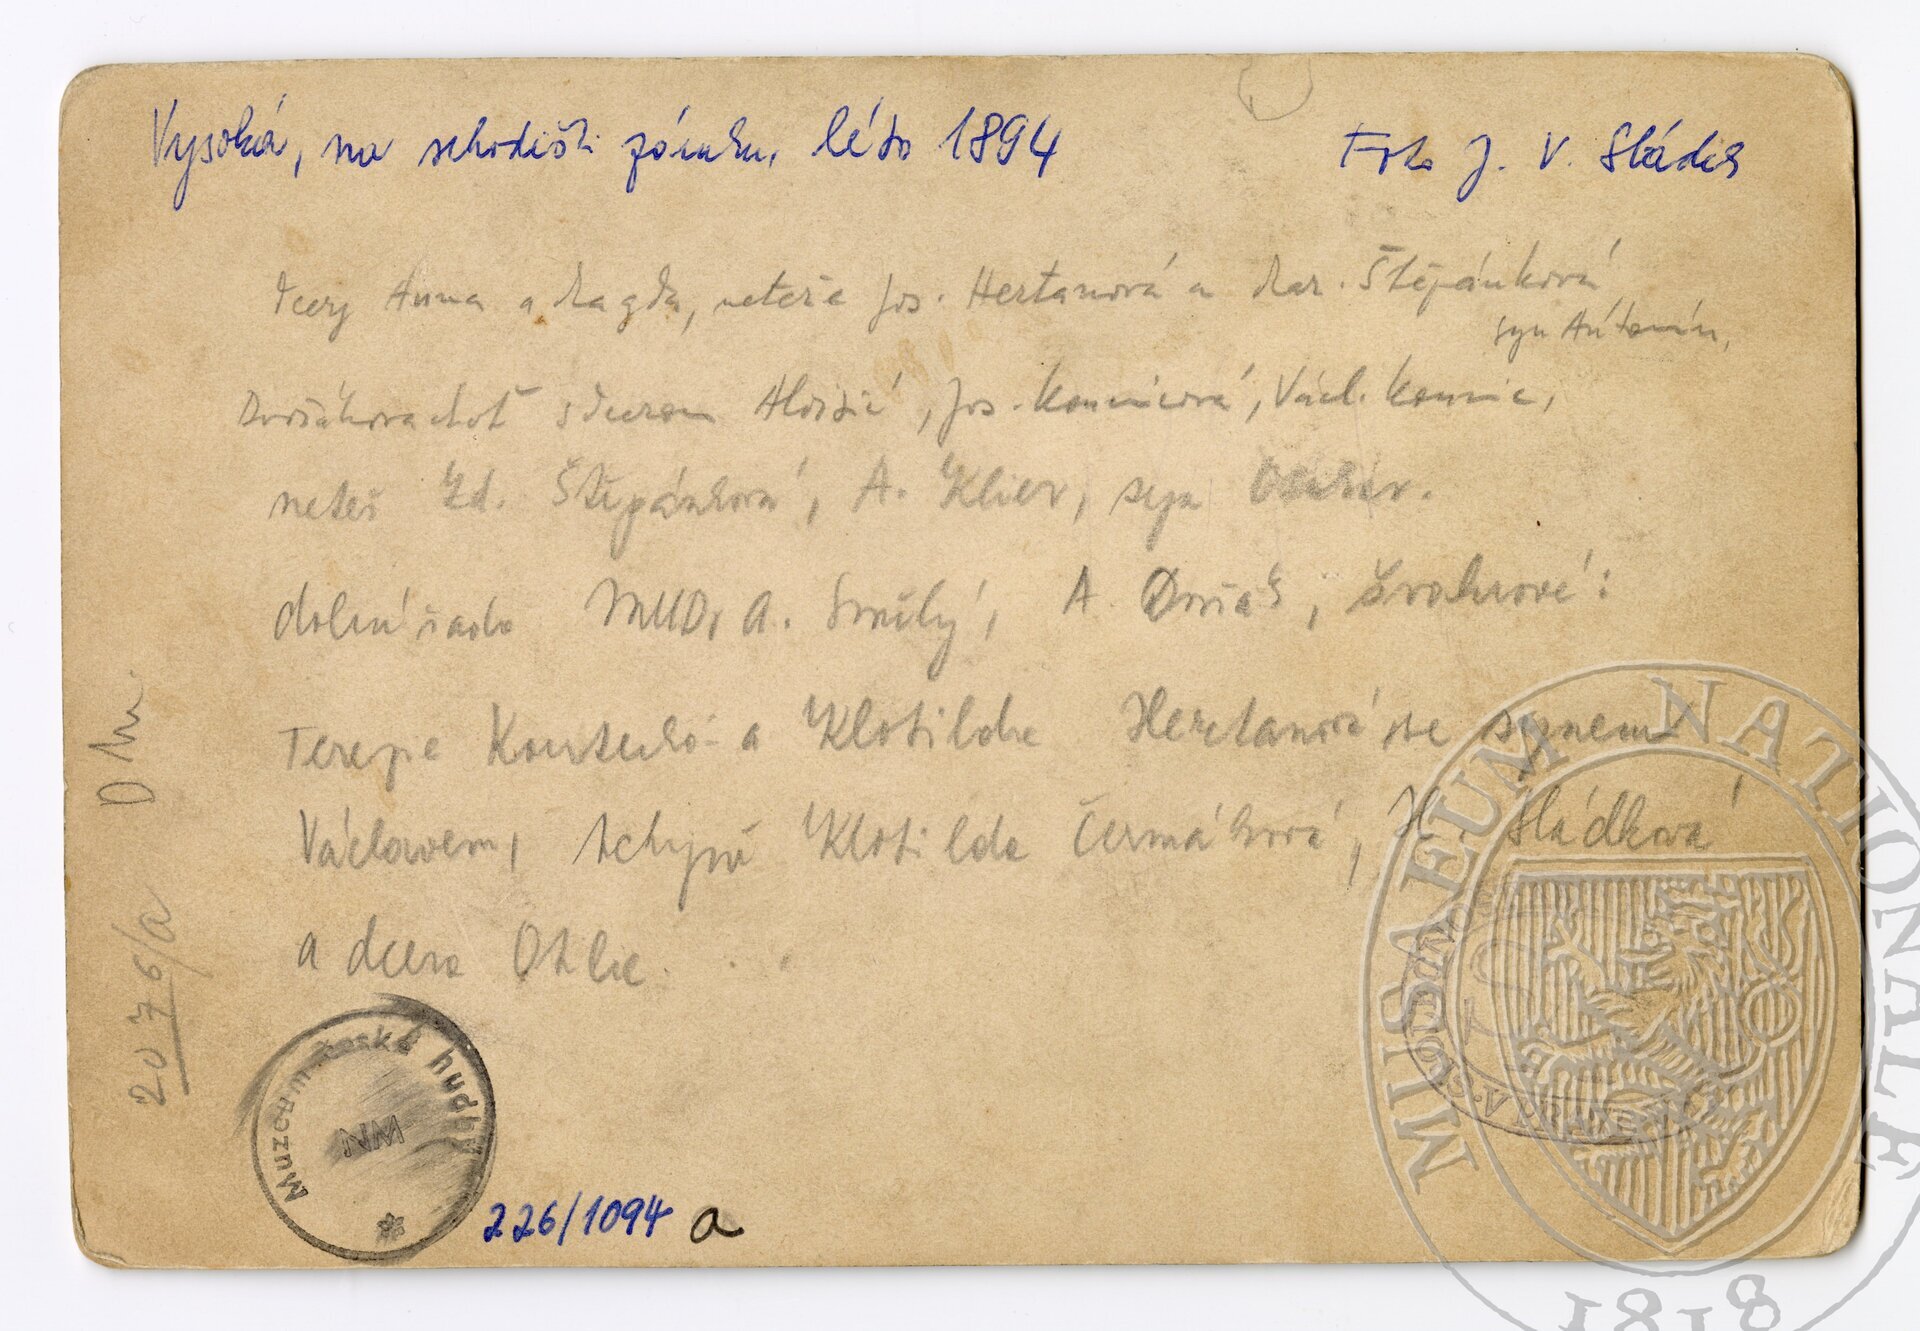 Vysoká, na schodišti zámku, léto 1894
Foto J. V. Sládek
dcery Anna a Magda, neteře Jos. Hertanová a Mar. Štěpánková
syn Antonín,
Dvořákova choť s dcerou Aloisií, Jos. Kounicová, Václ. Kounic,
neteř Zd. Štěpánková, A. Klier, syn Otakar.
dolní řada MUDr A. Smílý, A. Dvořák, švakrové:
Terezie Koutecká a Klotilda Hertanová se synem
Václavem, tchyně Klotilda Čermáková, H. Sládková
a dcera Otilie.
Dh.
2076/a
Muzeum české hudby
NM
226/1094 a
MUSAEUM NATIONALE
1818